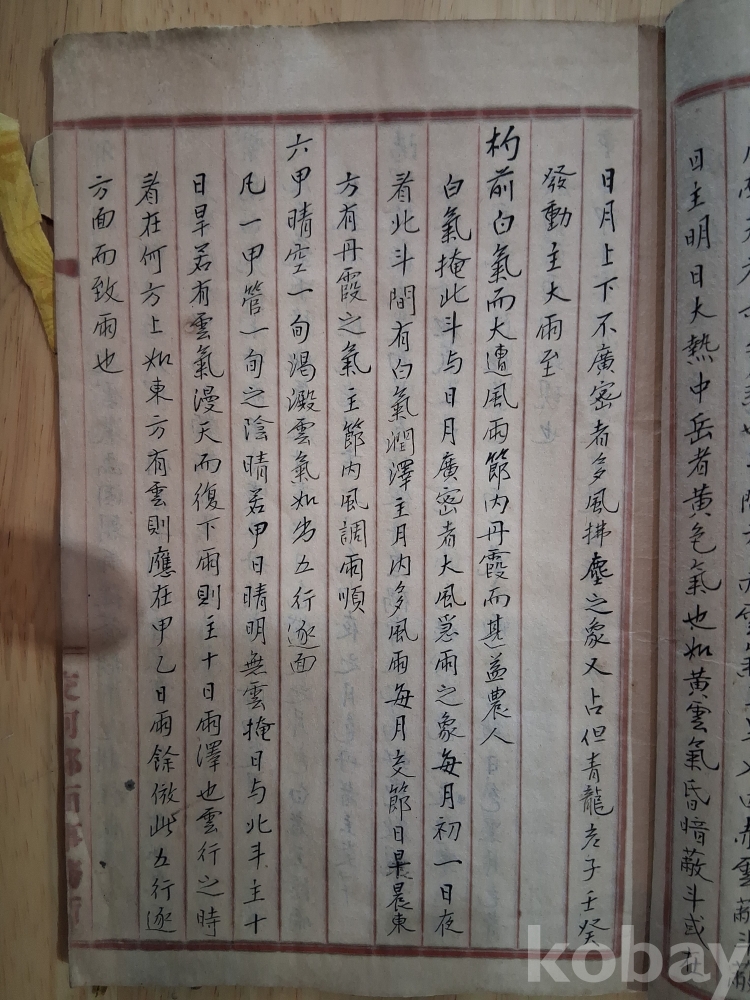 日主明日大熱中岳者黄色氣也如黄雲氣昏暗蔽斗或在
日月上下不廣密者多風拂塵之象又占但青龍老子壬癸
發動主大雨至
杓前白氣而大遭風雨節內丹霞而甚益農人
白氣掩此斗与日月廣密者大風急雨之象每月初一日夜
看北斗間有白氣潤澤主月內多風雨每月交節日晨東
方有丹霞之氣主節內風調雨順
六甲晴空一旬渴澱雲氣如为五行逐面
凡一甲管一旬之陰晴若甲日晴明無雲掩日与北斗主十
日旱若有雲氣漫天而復下雨則主十日雨澤也雲行之時
看在何方上如東方有雲則應在甲乙日雨餘倣此五行逐
方面而致雨也
kobay